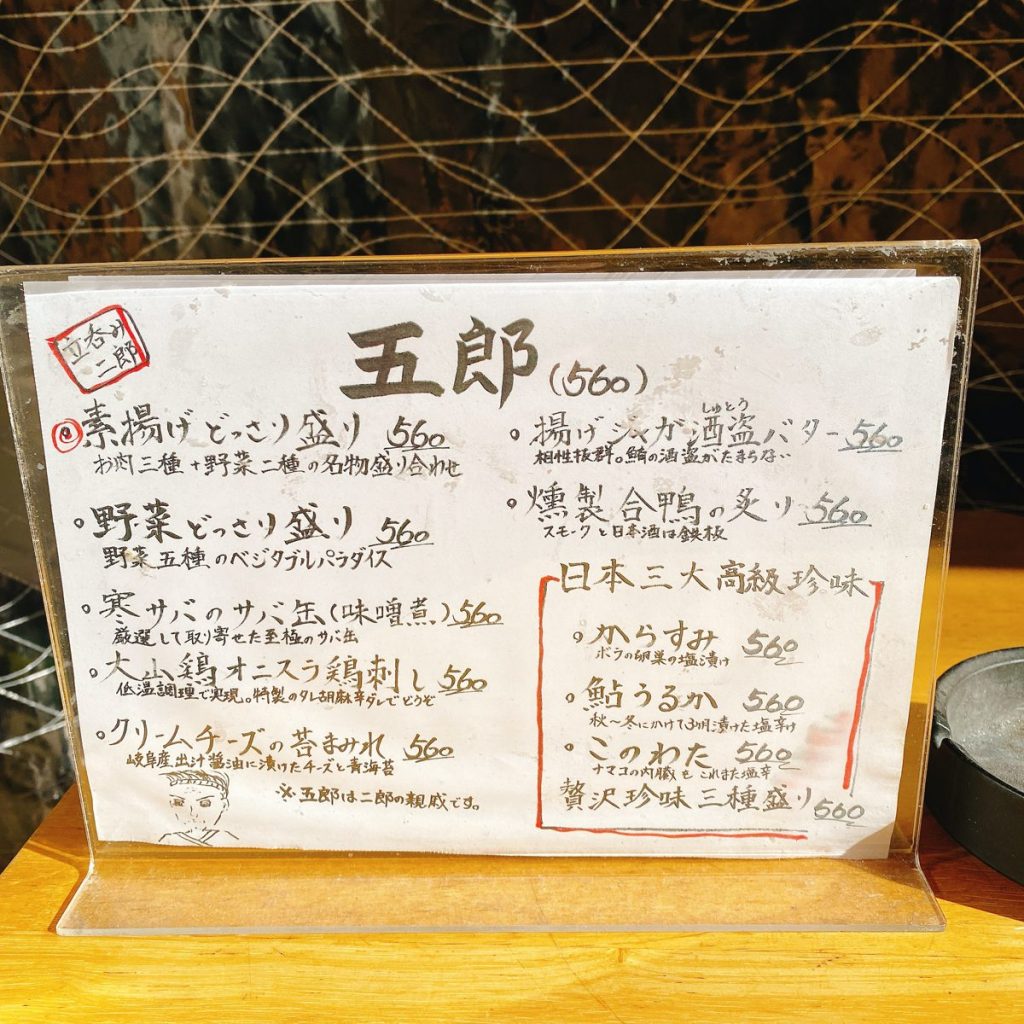 立呑み
二郎
五郎(560)
素揚げどっさり盛り 560
お肉三種+野菜二種の名物盛り合わせ
野菜どっさり盛り 560
野菜五種のベジタブルパラダイス
寒サバのサバ缶(味噌煮) 560
厳選して取り寄せた至極のサバ缶
大山鶏オニスラ鶏刺し 560
低温調理で実現。特製のタレ胡麻辛ダレでどうぞ
クリームチーズの苔まみれ 560
岐阜産出汁醤油に漬けたチーズと青海苔
※五郎は二郎の親戚です。
しゅとう
揚げジャガ酒盗バター 560
相性抜群。鮪の酒盗がたまらない
燻製合鴨の炙り 560
スモークと日本酒は鉄板
日本三大高級珍味
からすみ 560
ボラの卵巣の塩漬け
鮎うるか 560
秋〜冬にかけて3ヶ月漬けた塩辛け
このわた 560
ナマコの内臓もこれまた塩辛
贅沢珍味三種盛り 560